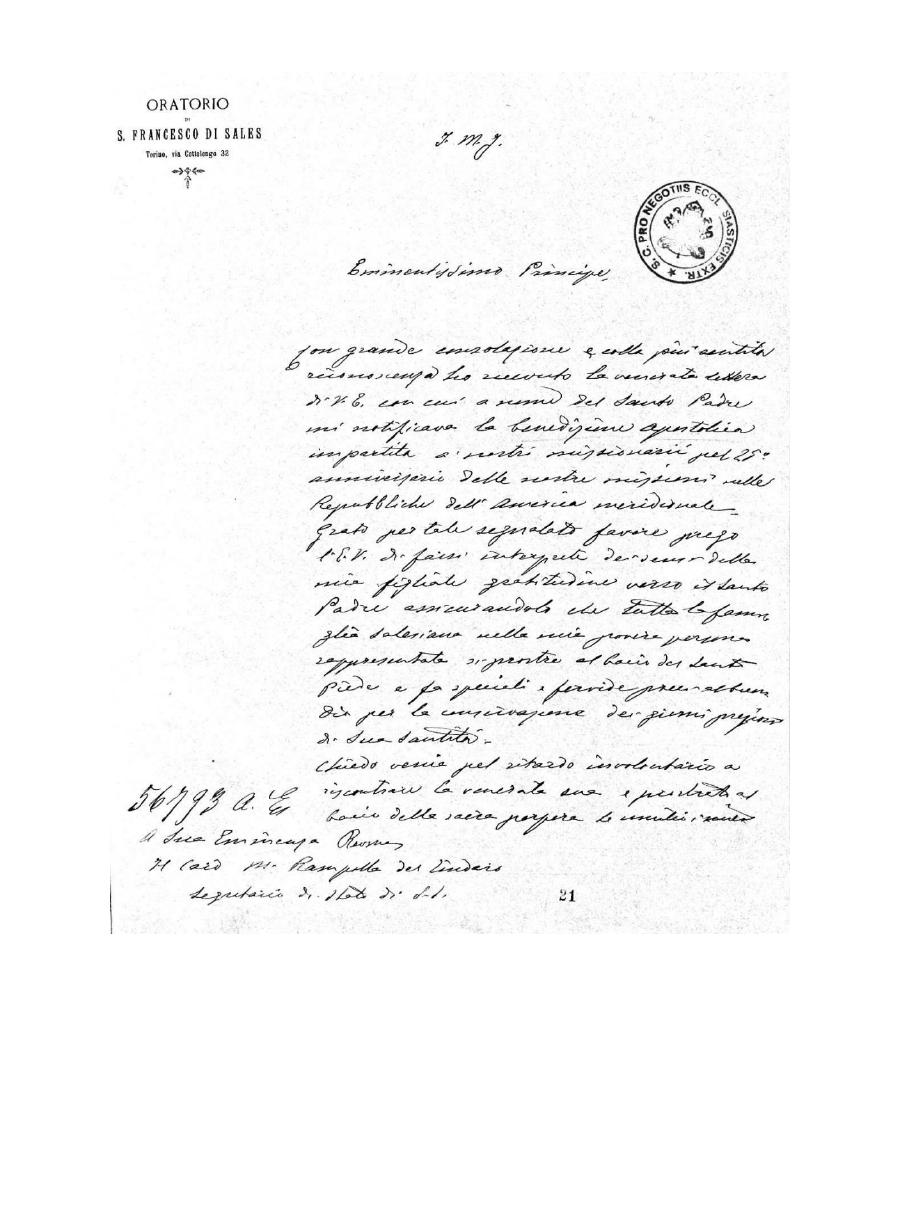 ORATORIO
DI
S. FRANCESCO DI SALES
Torino, via Cottolengo 32
J. M. J.
S. C. PRO NEGOTIIS ECCLESIASTICIS EXTR.
Eminentissimo Principe,
Con grande consolazione e colla più sentita
riconoscenza ho ricevuto la venerata lettera
di V. E. con cui a nome del Santo Padre
mi notificava la benedizione apostolica
impartita a' nostri missionarii pel 25°
anniversario delle nostre missioni nelle
Repubbliche dell'America meridionale.
Grato per tale segnalato favore prego
l'E. V. di farsi interprete dei sensi della
mia figliale gratitudine verso il Santo
Padre assicurandolo che tutta la fami
glia salesiana nella mia povera persona
rappresentata si prostra al bacio del Santo
Piede e fa speciali e fervide preci a
Dio per la conservazione dei giorni preziosi
di Sua Santità.
Chiedo venia pel ritardo involontario a
riscontrare la venerata sua e prostrato al
bacio della sacra porpora
56793 A. E
A Sua Eminenza Revma
Il Card M. Rampolla del Tindaro
Segretario di Stato di S. S.
21